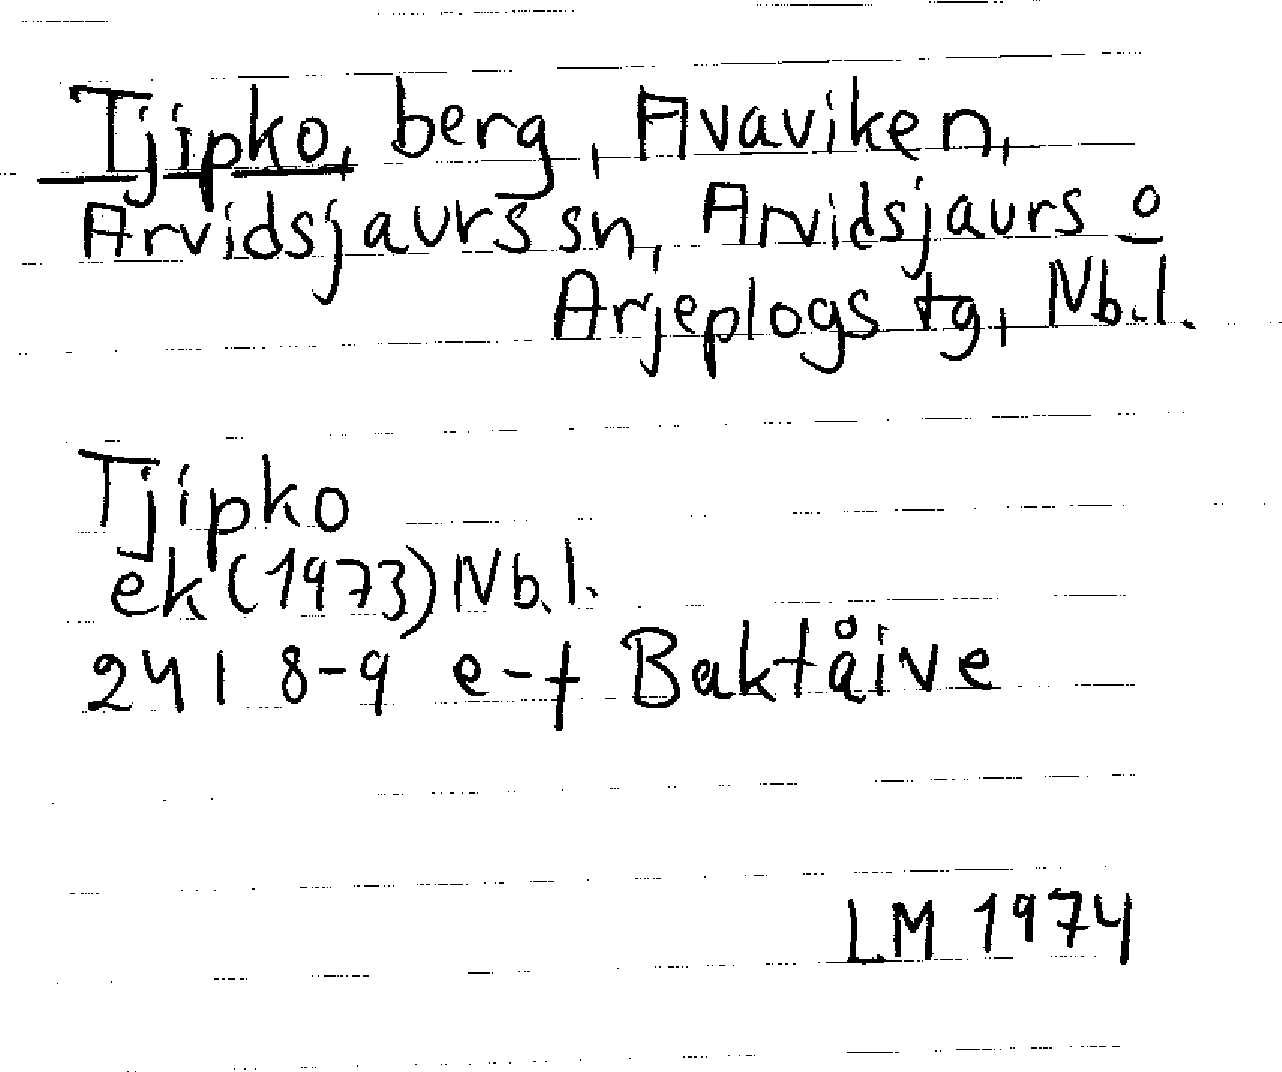 Tjipko, berg, Avaviken,
Arvidsjaurs sn, Arvidsjaurs o
Arjeplogs tg, Nb.l.
Tjipko
ek (1973) Nb.l.
24 I 8-9 e-f Baktåive
LM 1974